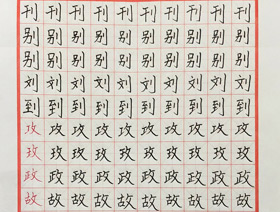 刊刊刊刊刊刊刊刊刊刊
别别别别别别别别别别
别别别别别别别别别别
刘刘刘刘刘刘刘刘刘刘
到到到到到到到到到到
攻攻攻攻攻攻攻攻攻攻
玫玫玫玫玫玫玫玫玫玫
政政政政政政政政政政
故故故故故故故故故故